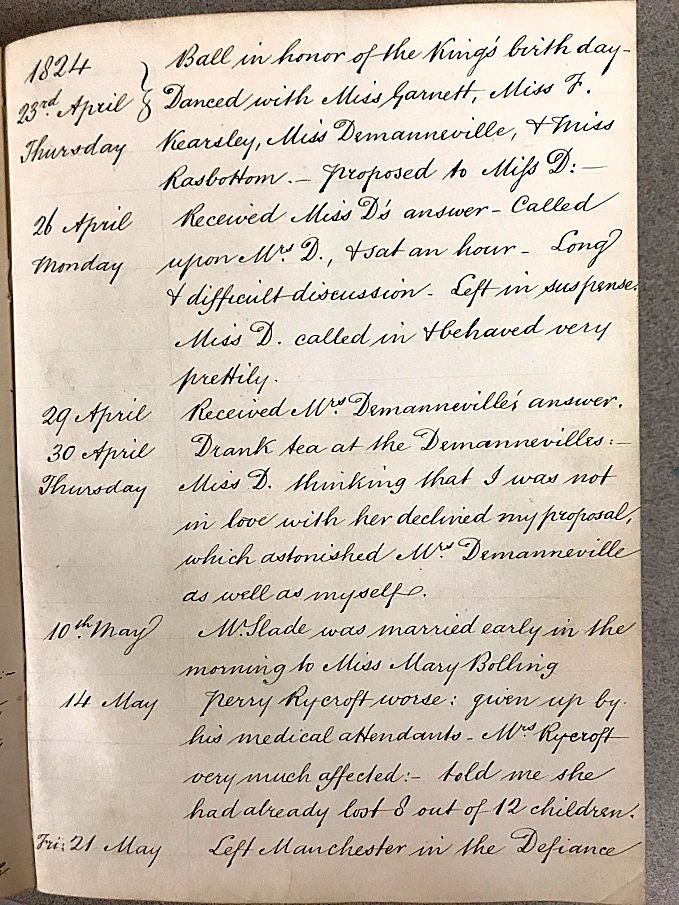 1824 Ball in honor of the King's birth day-
23rd April Danced with Miss Garnett, Miss F.
Thursday Kearsley, Miss Demanneville, & Miss
Rasbottom. — proposed to Miss D: —
26 April Received Miss D's answer - Called
Monday upon Mrs D., & sat an hour - Long
& difficult discussion - Left in suspense.
Miss D. called in & behaved very
prettily.
29 April Received Mrs Demanneville's answer.
30 April Drank tea at the Demannevilles: -
Thursday Miss D. thinking that I was not
in love with her declined my proposal,
which astonished Mrs Demanneville
as well as myself.
10th May Mr Slade was married early in the
morning to Miss Mary Bolling
14 May Perry Rycroft worse: given up by
his medical attendants - Mrs Rycroft
very much affected: - told me she
had already lost 8 out of 12 children.
Fri: 21 May Left Manchester in the Defiance